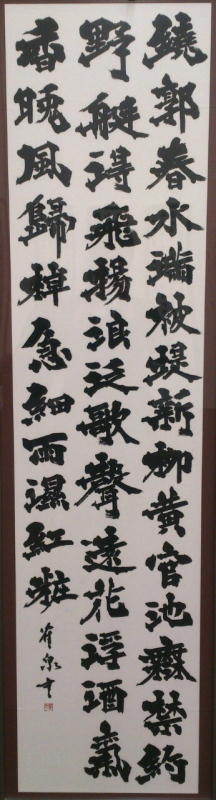 繞郭春水滿被堤新柳黄官池無禁約
野艇得飛揚浪泛歌聲遠花浮酒氣
香晚風歸棹急細雨濕紅粧